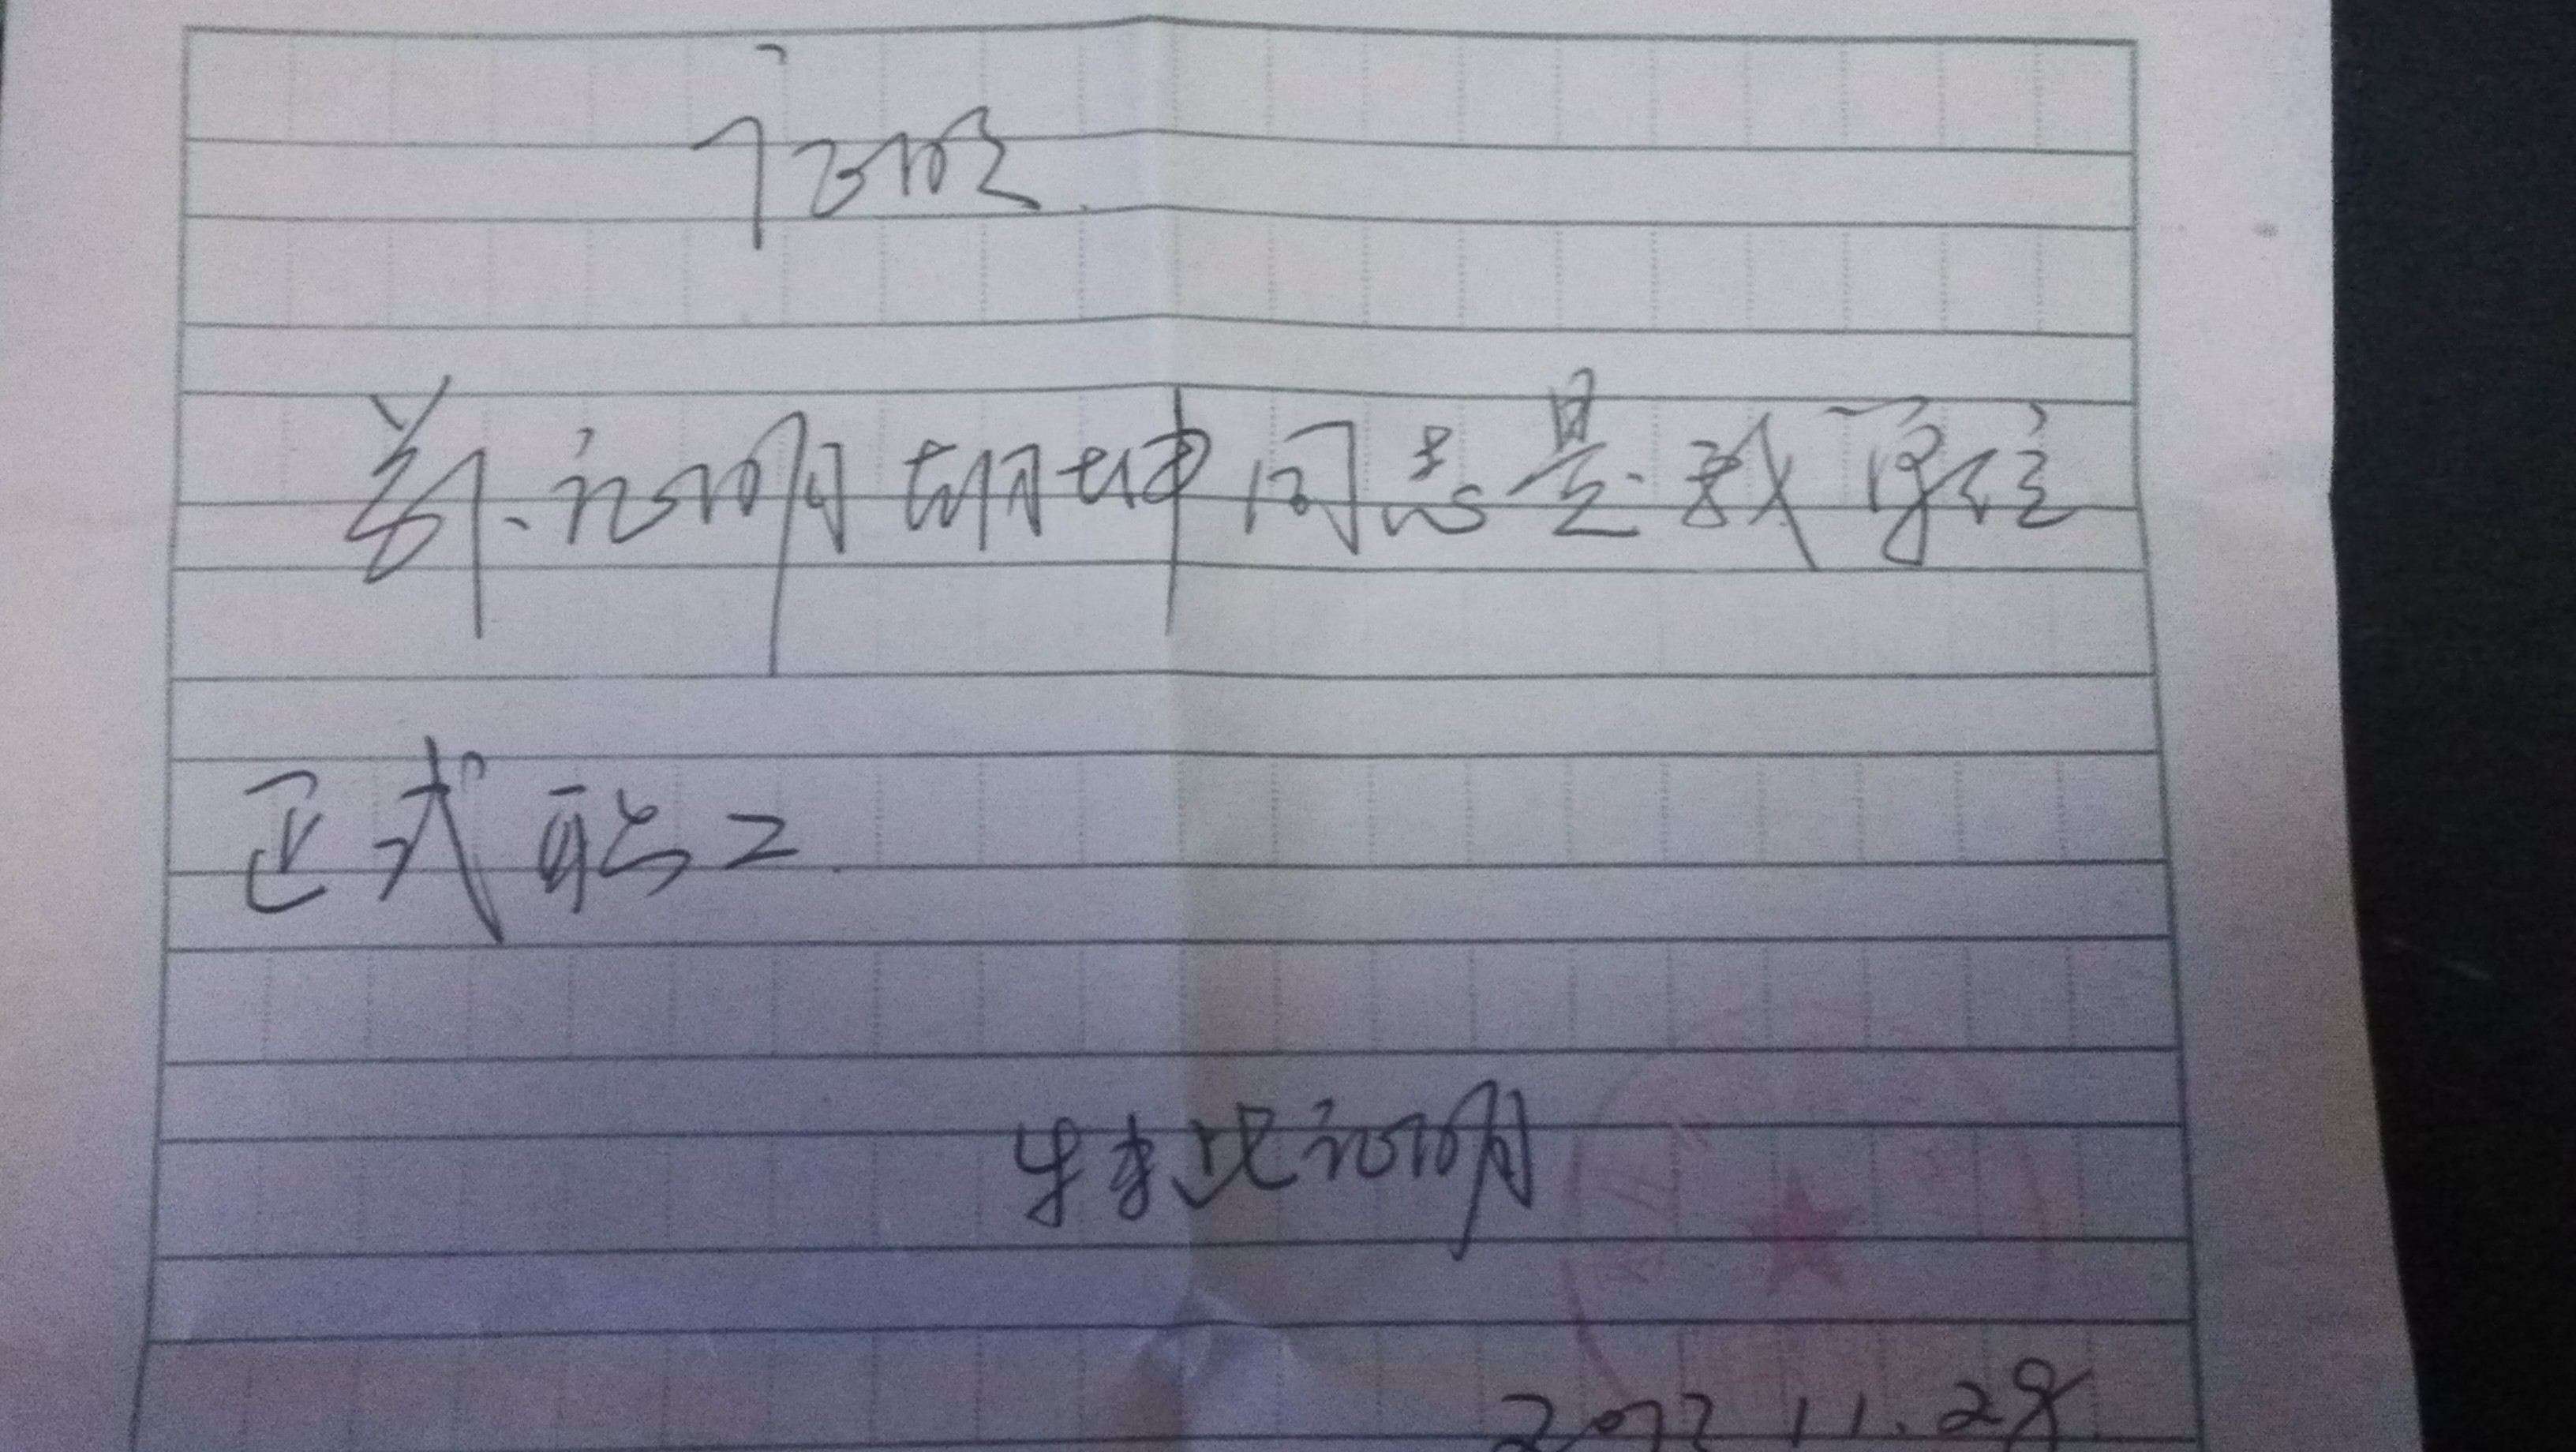 证明
兹证明胡坤同志是我单位
正式职工
特此证明
11.28